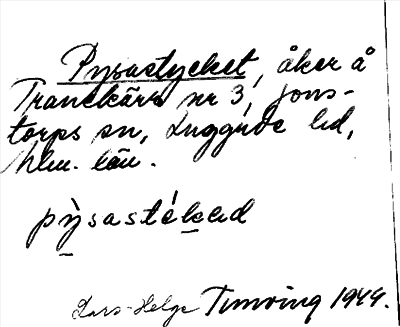 Pysastycket, åker å
Tranekärr nr 3, Jons-
torps sn, Luggude hd,
Mlm. län.
pỳsastékəd
Lars-Helge Turvring 1944.